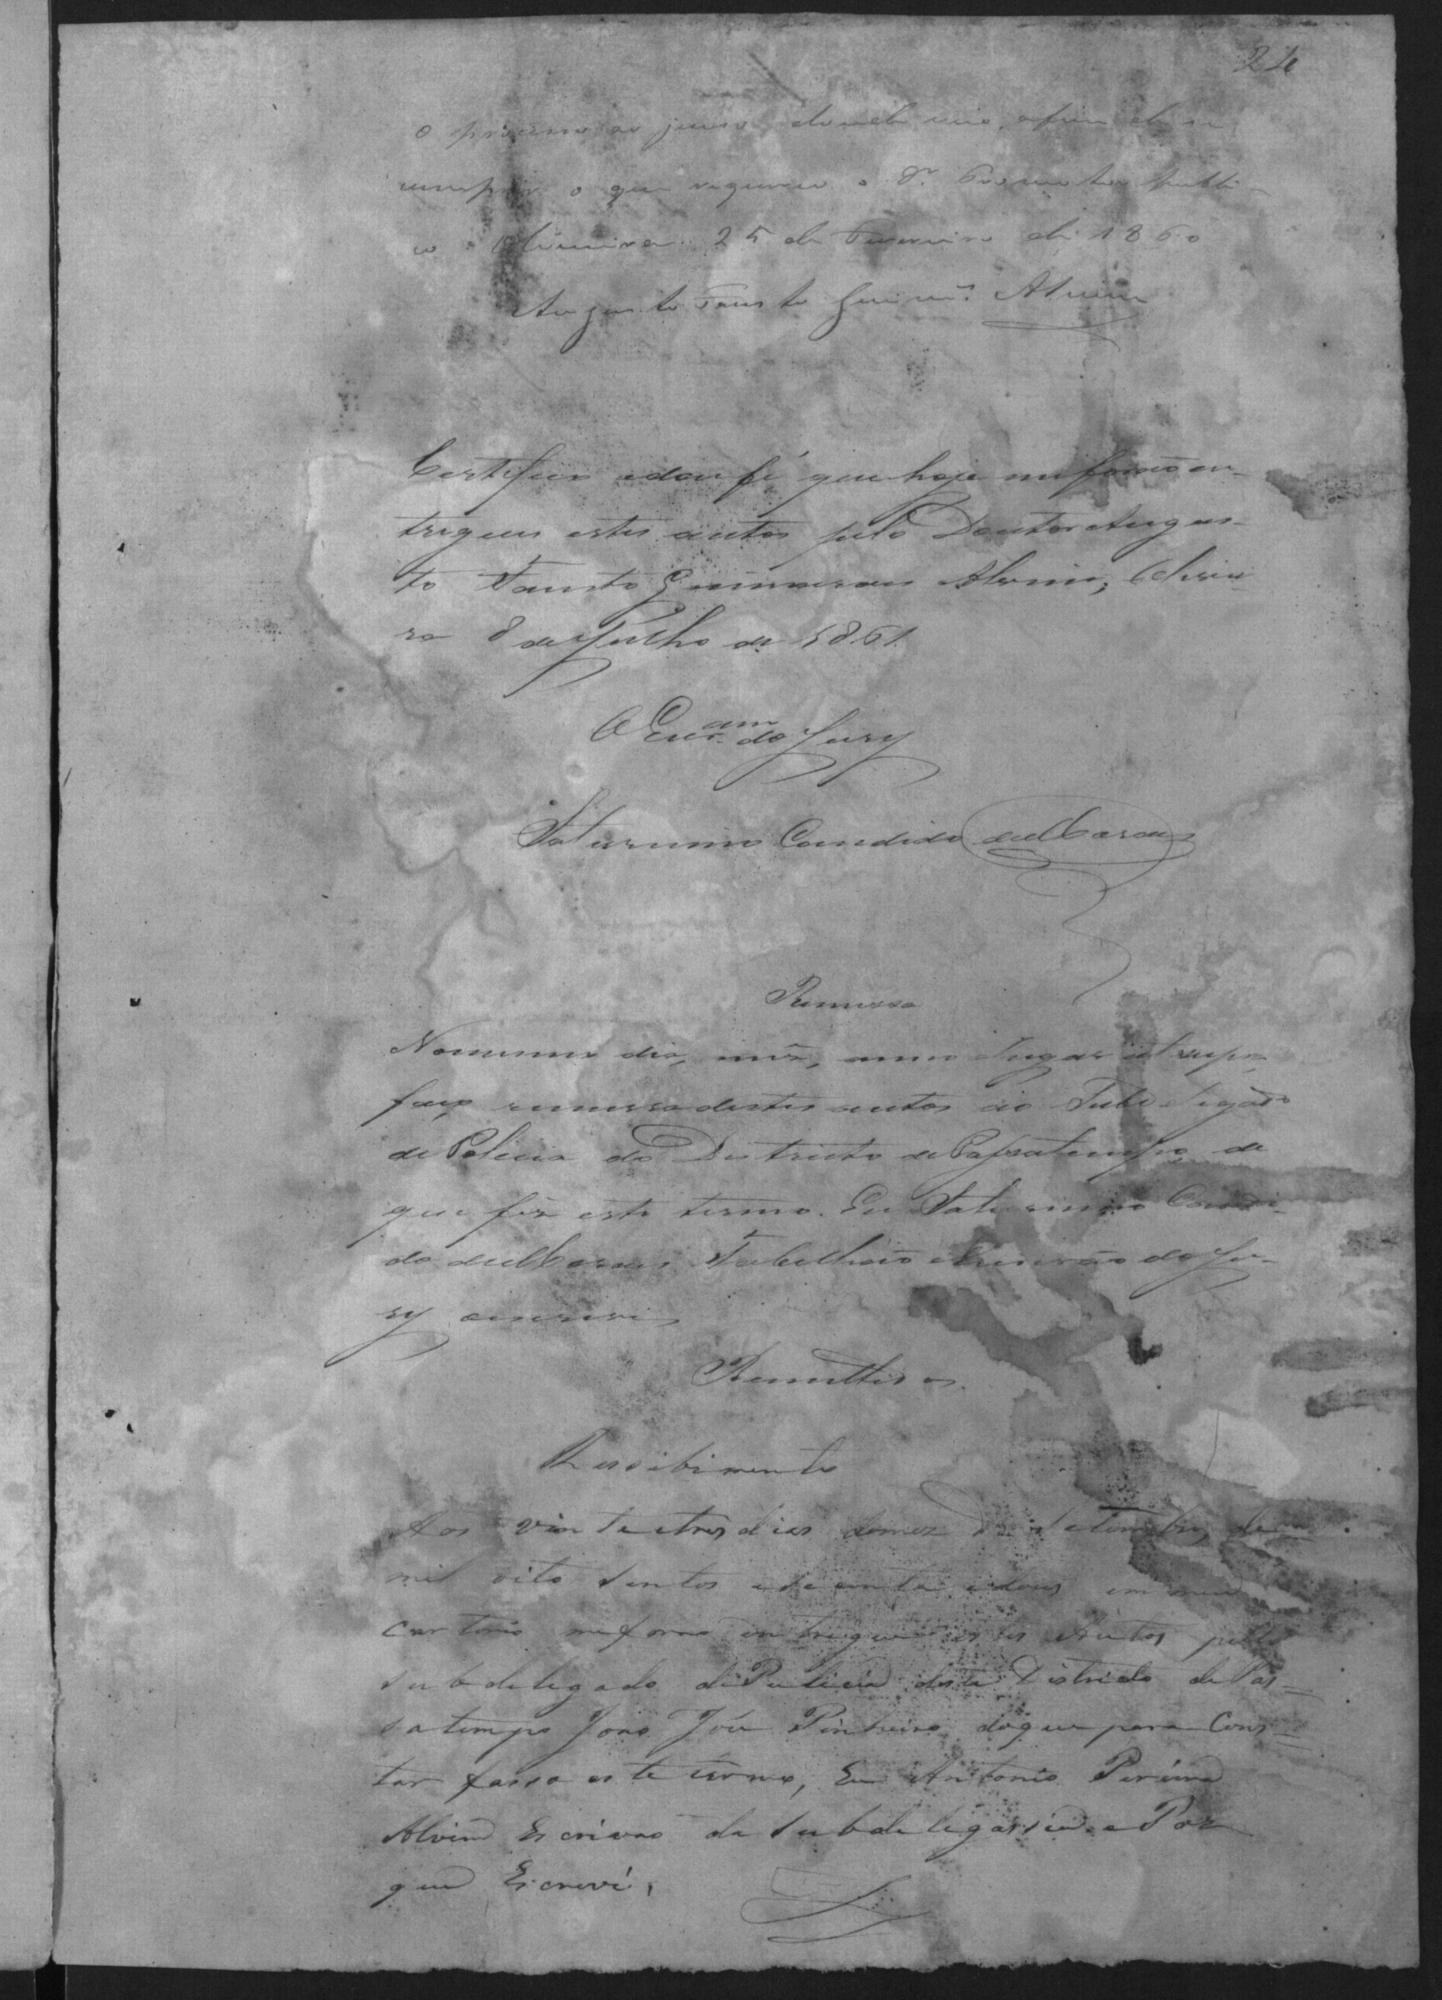 24
o processo ao juizo donde veio, afim de se
cumprir o que requereu o Dr. Promotor Publi-
co. Oliveira 25 de Fevereiro de 1860
Augusto Fausto Guim.es Alvim
Certifico e dou fé que hoje me forão en-
tregues estes autos pelo Doutor Augus-
to Fausto Guimaraes Alvim, Olivei-
ra 8 de Julho de 1861.
O Escr.am do Jury
Saturnino Candido de Moraes
Remessa
No mesmo dia, mês, anno e lugar
faço remessa destes autos ao Subdelegado
de Policia do Districto de Passatempo de
que fiz este termo. Eu Saturnino Candi-
do de Moraes Tabelhião e Escrivão do Ju-
ry escrevi
Remettidos.
Ressibimento
Aos vinte e tres dias do mez de Setembro de
mil oito sentos e secenta e dous em meu
cartorio me forão entregues estes Autos pello
subdelegado de Pulicia deste Districto de Pas=
satempo João José Pinheiro, do que para Cons=
tar fasso este termo, Eu Antonio Pereira
Alvim Escrivão da subdelegassia e Paz
que Escrevi,